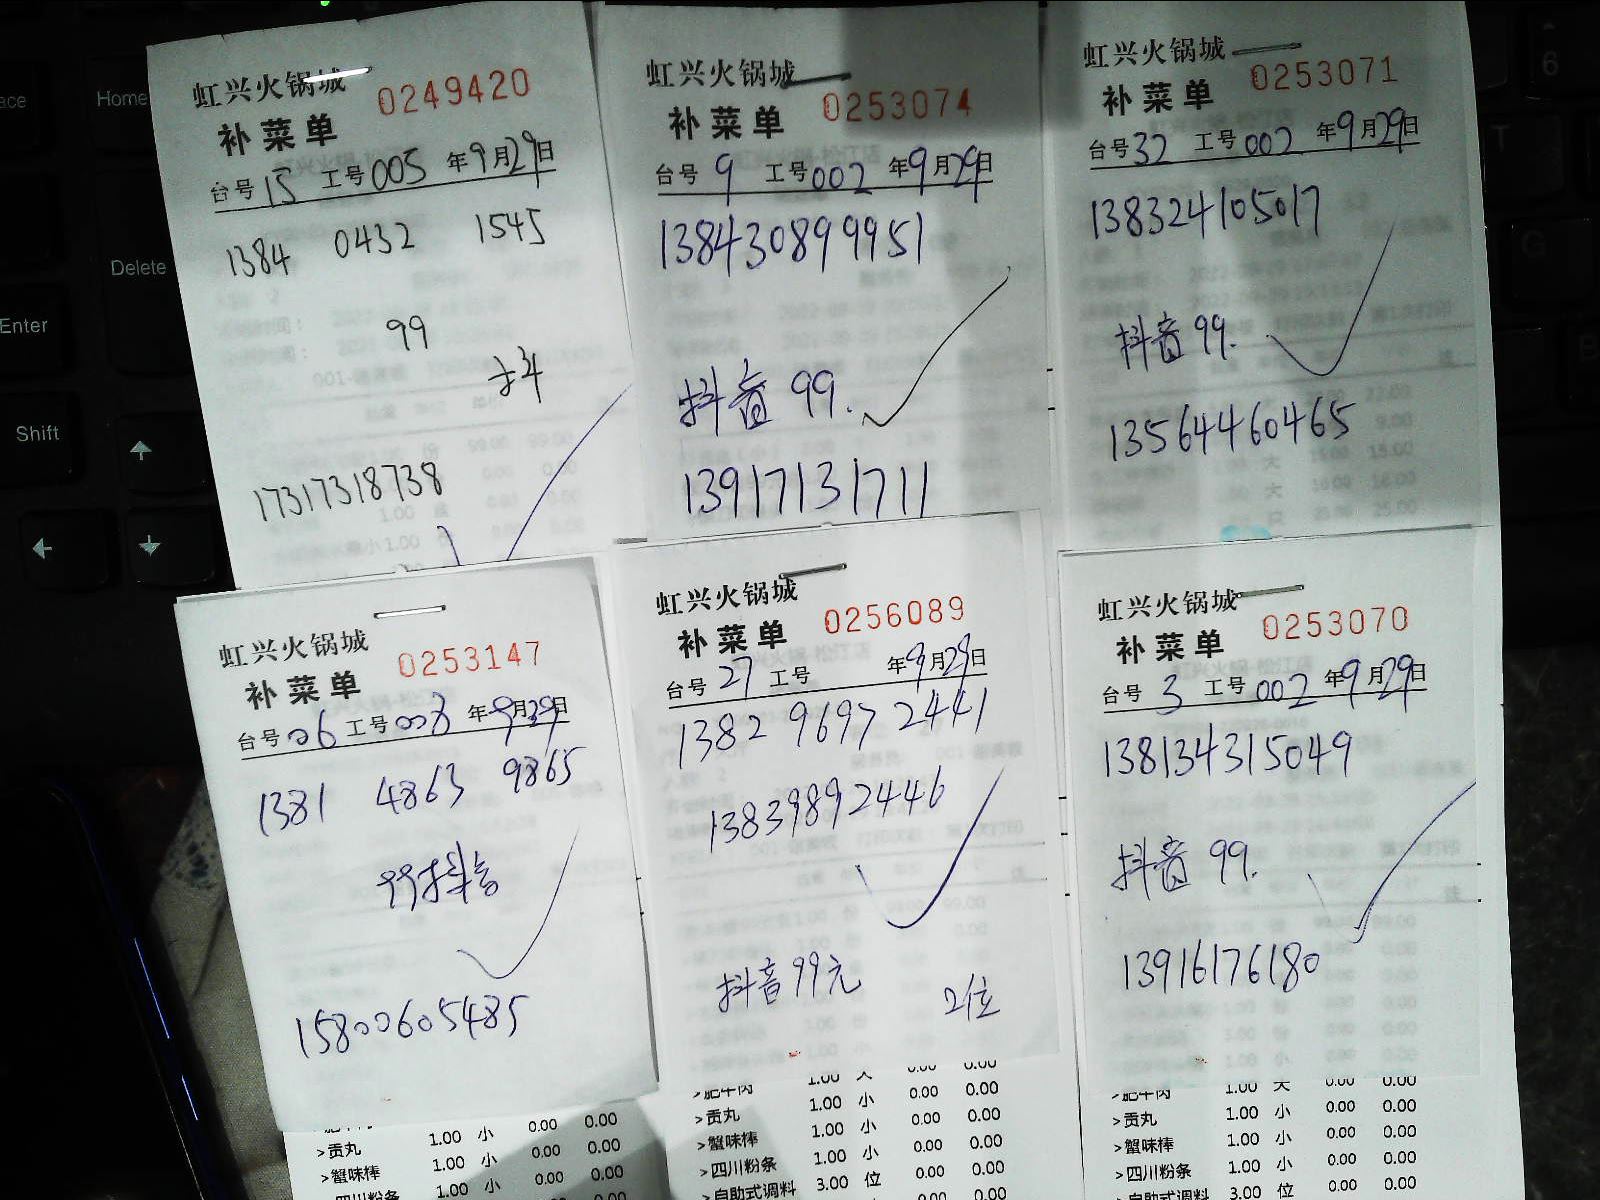 虹兴火锅城 0249420
补菜单
台号15 工号005 年9月29日
1384 0432 1545
99
抖
17317318738
虹兴火锅城 0253074
补菜单
台号 9 工号002 年9月29日
138430899951
抖音 99.
13917131711
虹兴火锅城 0253071
补菜单
台号32 工号002 年9月29日
138324105017
抖音 99.
13564460465
虹兴火锅城 0253147
补菜单
台号06 工号003 年9月29日
1381 4863 9865
99抖音
15800605485
虹兴火锅城 0256089
补菜单
台号 27 工号 年9月29日
1382 9697 2441
13839892446
抖音 99元 2位
>贡丸 1.00 小 0.00 0.00
>蟹味棒 1.00 小 0.00 0.00
>四川粉条 1.00 小 0.00 0.00
>自助式调料 3.00 位 0.00 0.00
虹兴火锅城 0253070
补菜单
台号 3 工号002 年9月29日
138134315049
抖音 99.
13916176180
>贡丸 1.00 小 0.00 0.00
>蟹味棒 1.00 小 0.00 0.00
>四川粉条 1.00 小 0.00 0.00
>自助式调料 3.00 位 0.00 0.00
>贡丸 1.00 小 0.00 0.00
>蟹味棒 1.00 小 0.00 0.00
四川粉条 1.00 小 0.00 0.00
Home
Delete
Enter
Shift